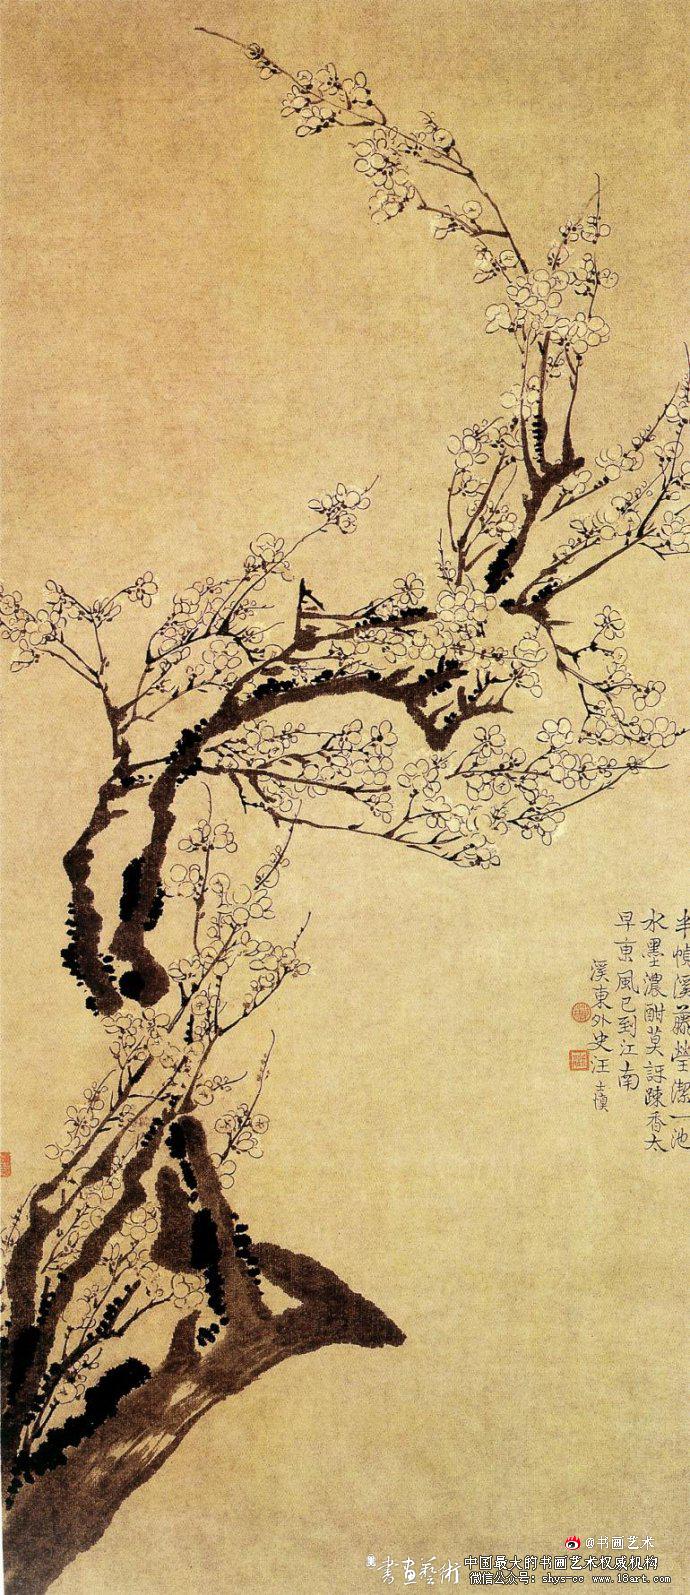 半幀溪藤瑩潔一池
水墨濃酣莫訝疎香太
早東風已到江南
溪東外史汪士慎
@书画艺术
書畫藝術
中国最大的书画艺术权威机构
微信公众号：shys-cc www.18art.com